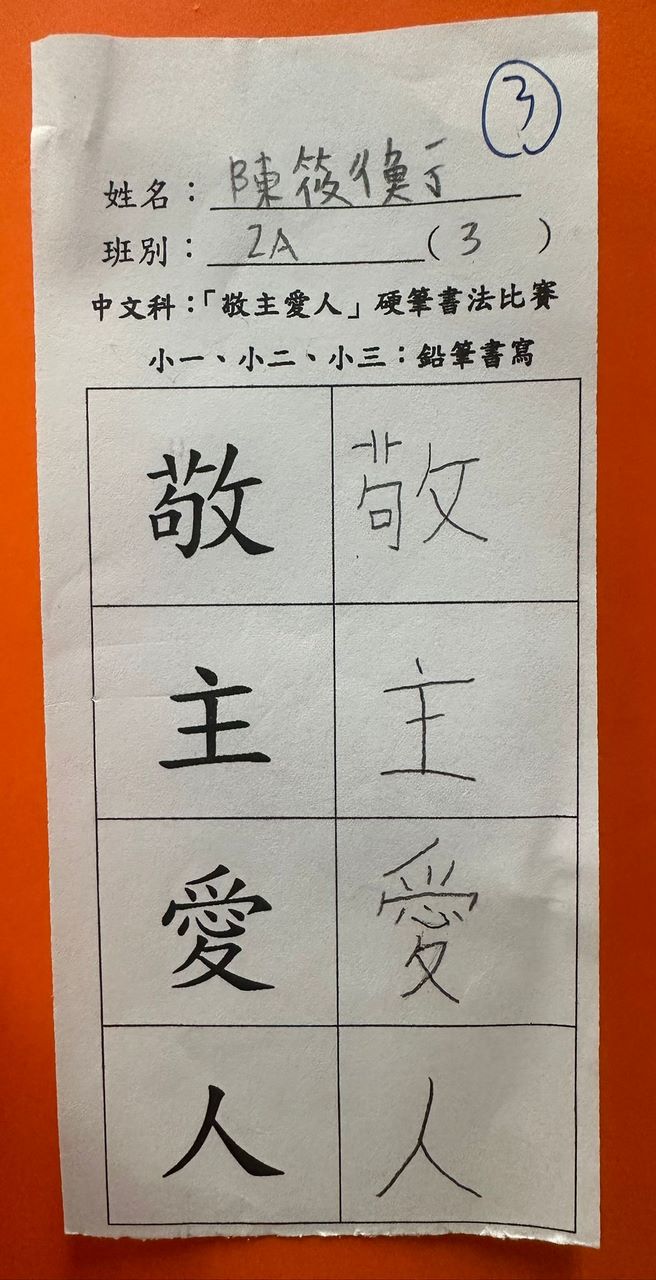 3
姓名：陳筱
班別：2A（3）
中文科：「敬主愛人」硬筆書法比賽
小一、小二、小三：鉛筆書寫
敬 敬
主 主
愛 愛
人 人